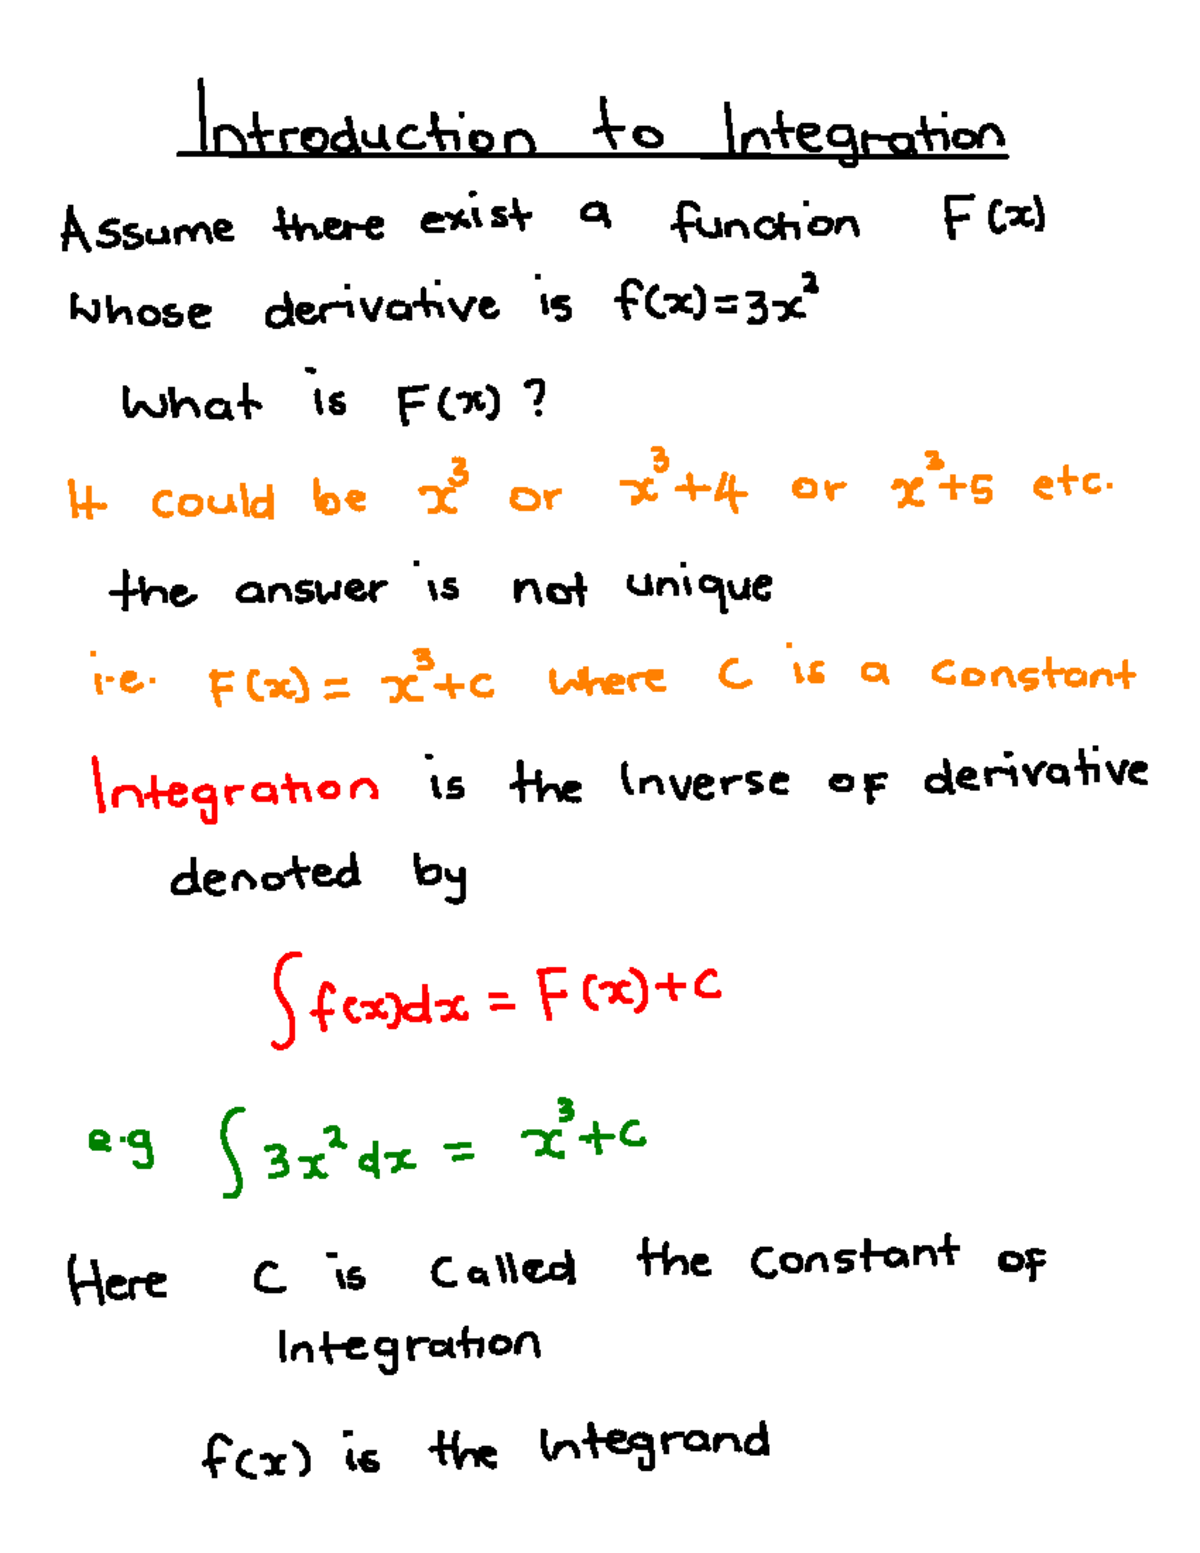 Introduction to Integration
Assume there exist a function F(x)
Whose derivative is f(x)=3x²
What is F(x) ?
It could be x³ or x³+4 or x³+5 etc.
the answer is not unique
i.e. F(x) = x³+c where C is a constant
Integration is the Inverse of derivative
denoted by
∫f(x)dx = F(x)+C
e.g ∫3x²dx = x³+C
Here C is Called the Constant of
Integration
f(x) is the Integrand